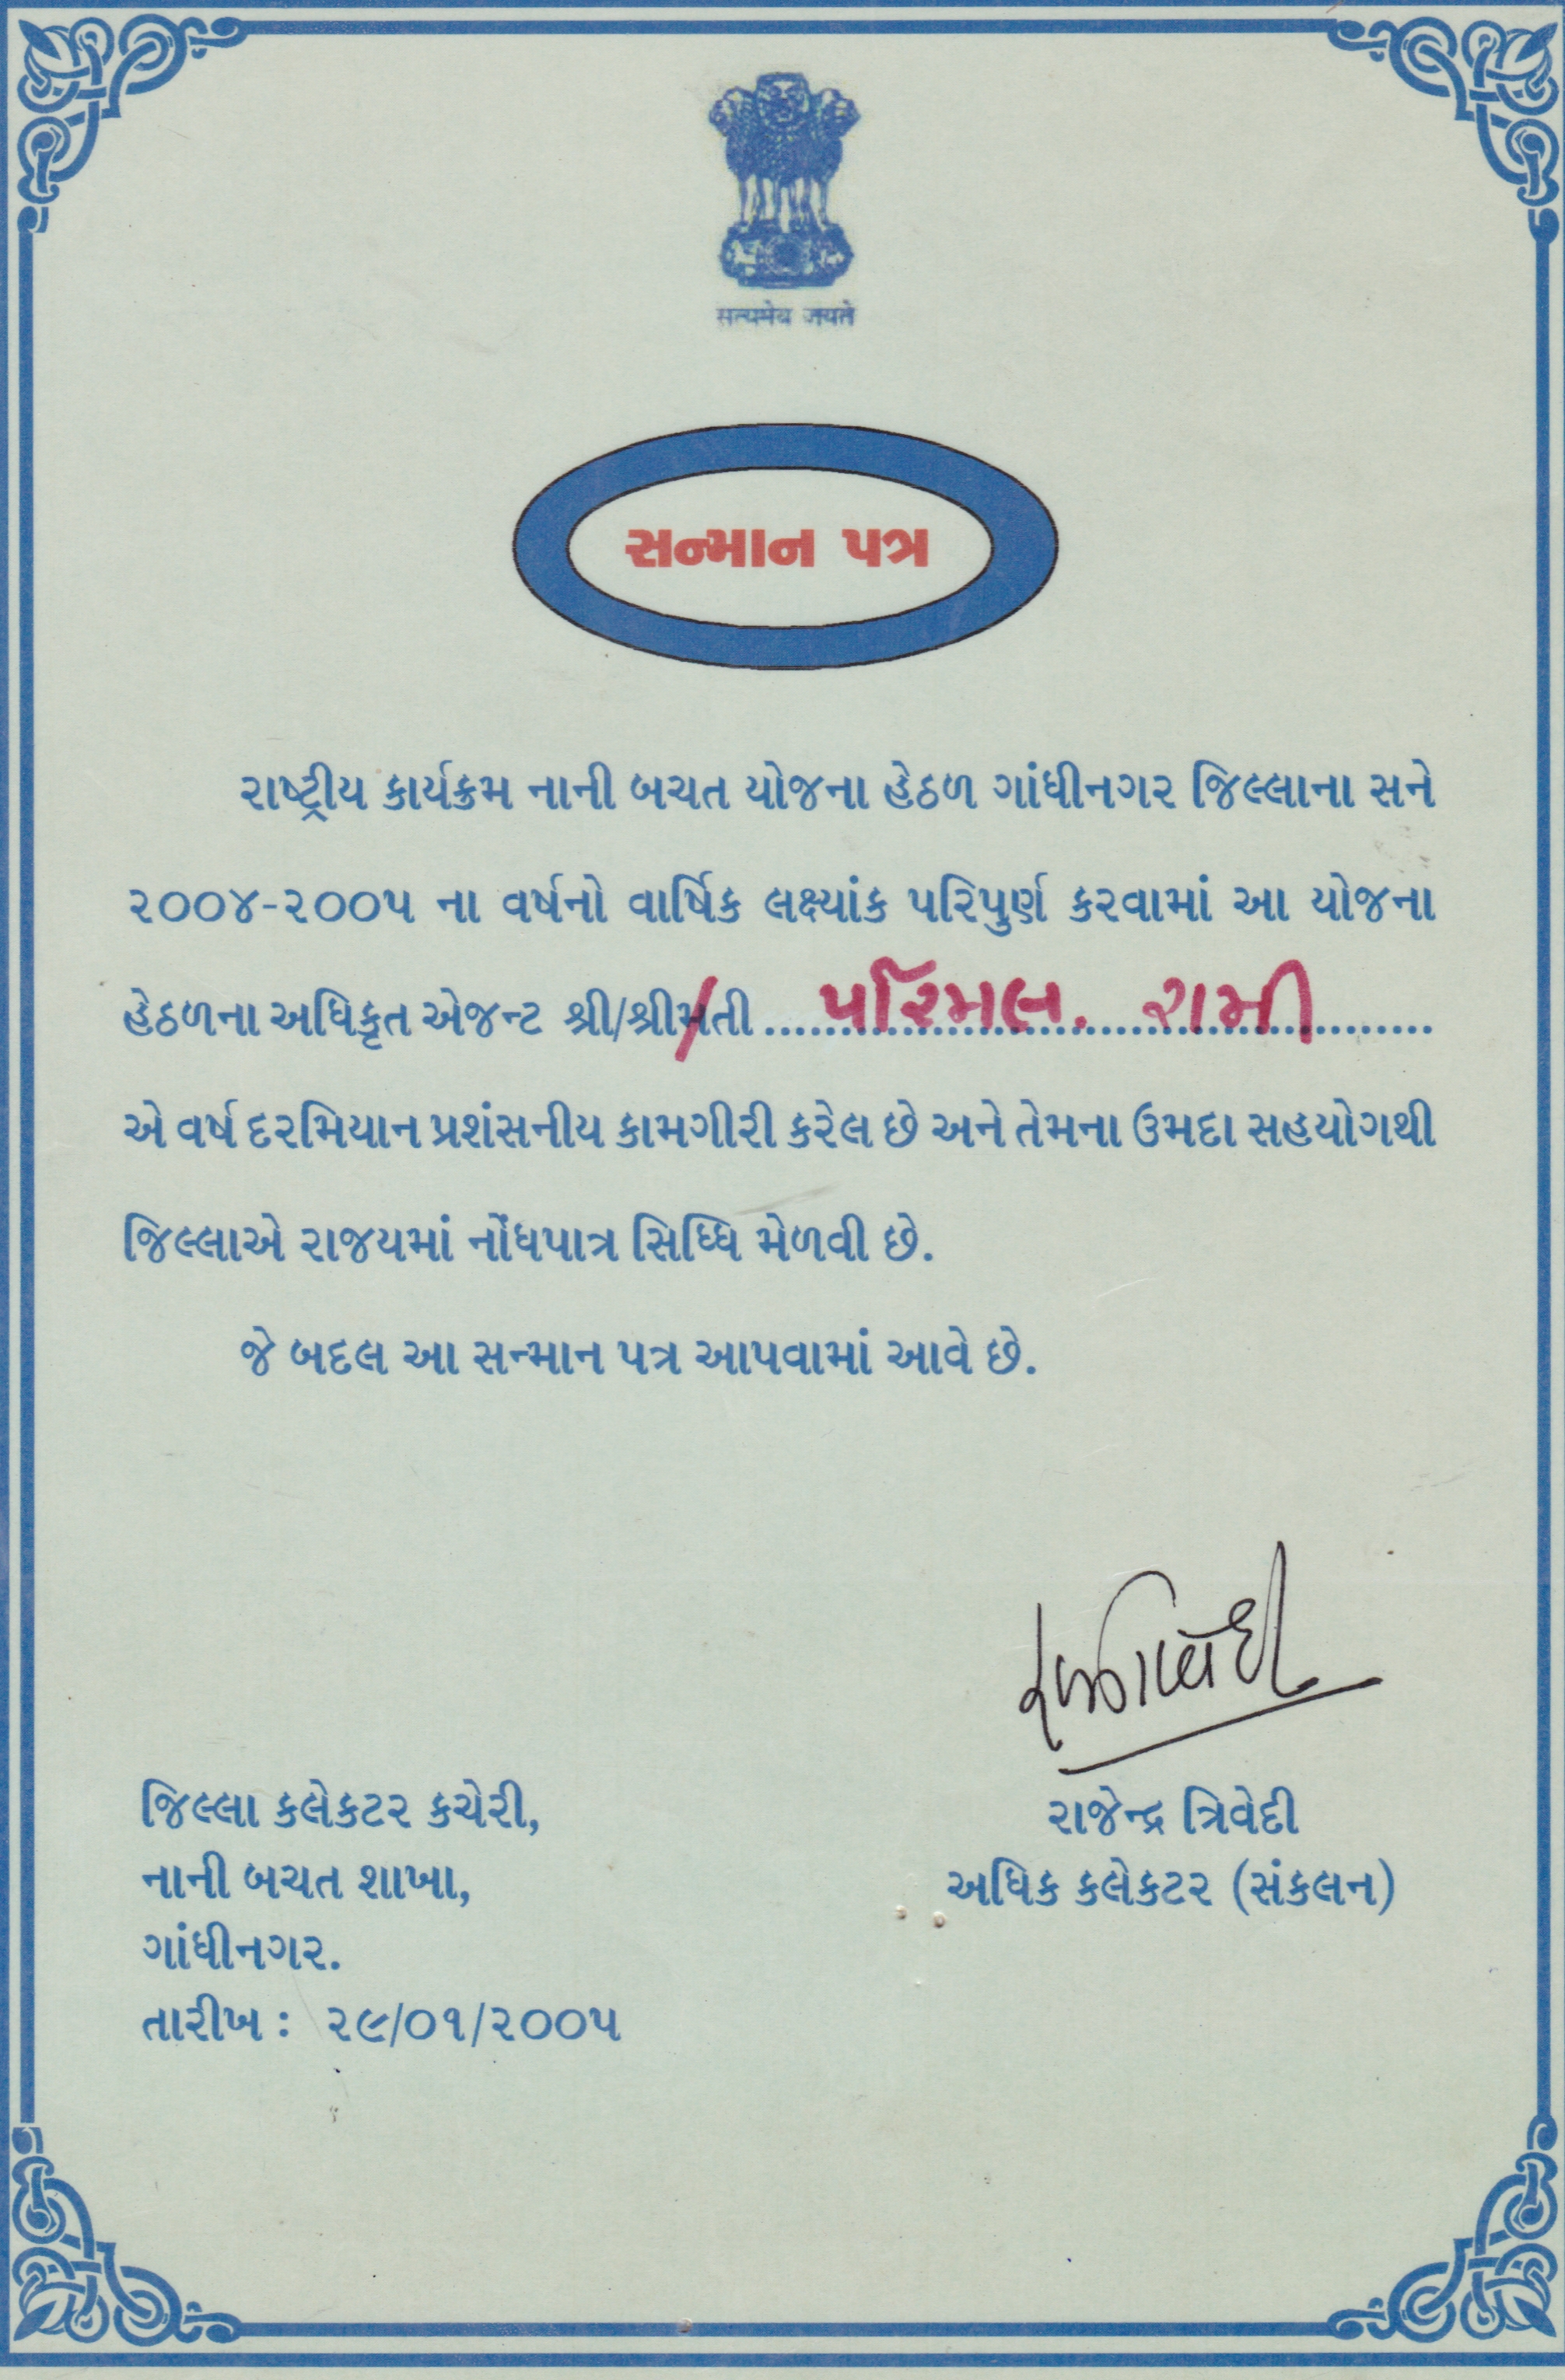 सत्यमेव जयते
સન્માન પત્ર
રાષ્ટ્રીય કાર્યક્રમ નાની બચત યોજના હેઠળ ગાંધીનગર જિલ્લાના સને
૨૦૦૪-૨૦૦૫ ના વર્ષનો વાર્ષિક લક્ષ્યાંક પરિપુર્ણ કરવામાં આ યોજના
હેઠળના અધિકૃત એજન્ટ શ્રી/શ્રીમતી ........ પરિમલ. રામી ........
એ વર્ષ દરમિયાન પ્રશંસનીય કામગીરી કરેલ છે અને તેમના ઉમદા સહયોગથી
જિલ્લાએ રાજયમાં નોંધપાત્ર સિધ્ધિ મેળવી છે.
જે બદલ આ સન્માન પત્ર આપવામાં આવે છે.
જિલ્લા કલેકટર કચેરી,
નાની બચત શાખા,
ગાંધીનગર.
તારીખ : ૨૯/૦૧/૨૦૦૫
રાજેન્દ્ર ત્રિવેદી
અધિક કલેકટર (સંકલન)